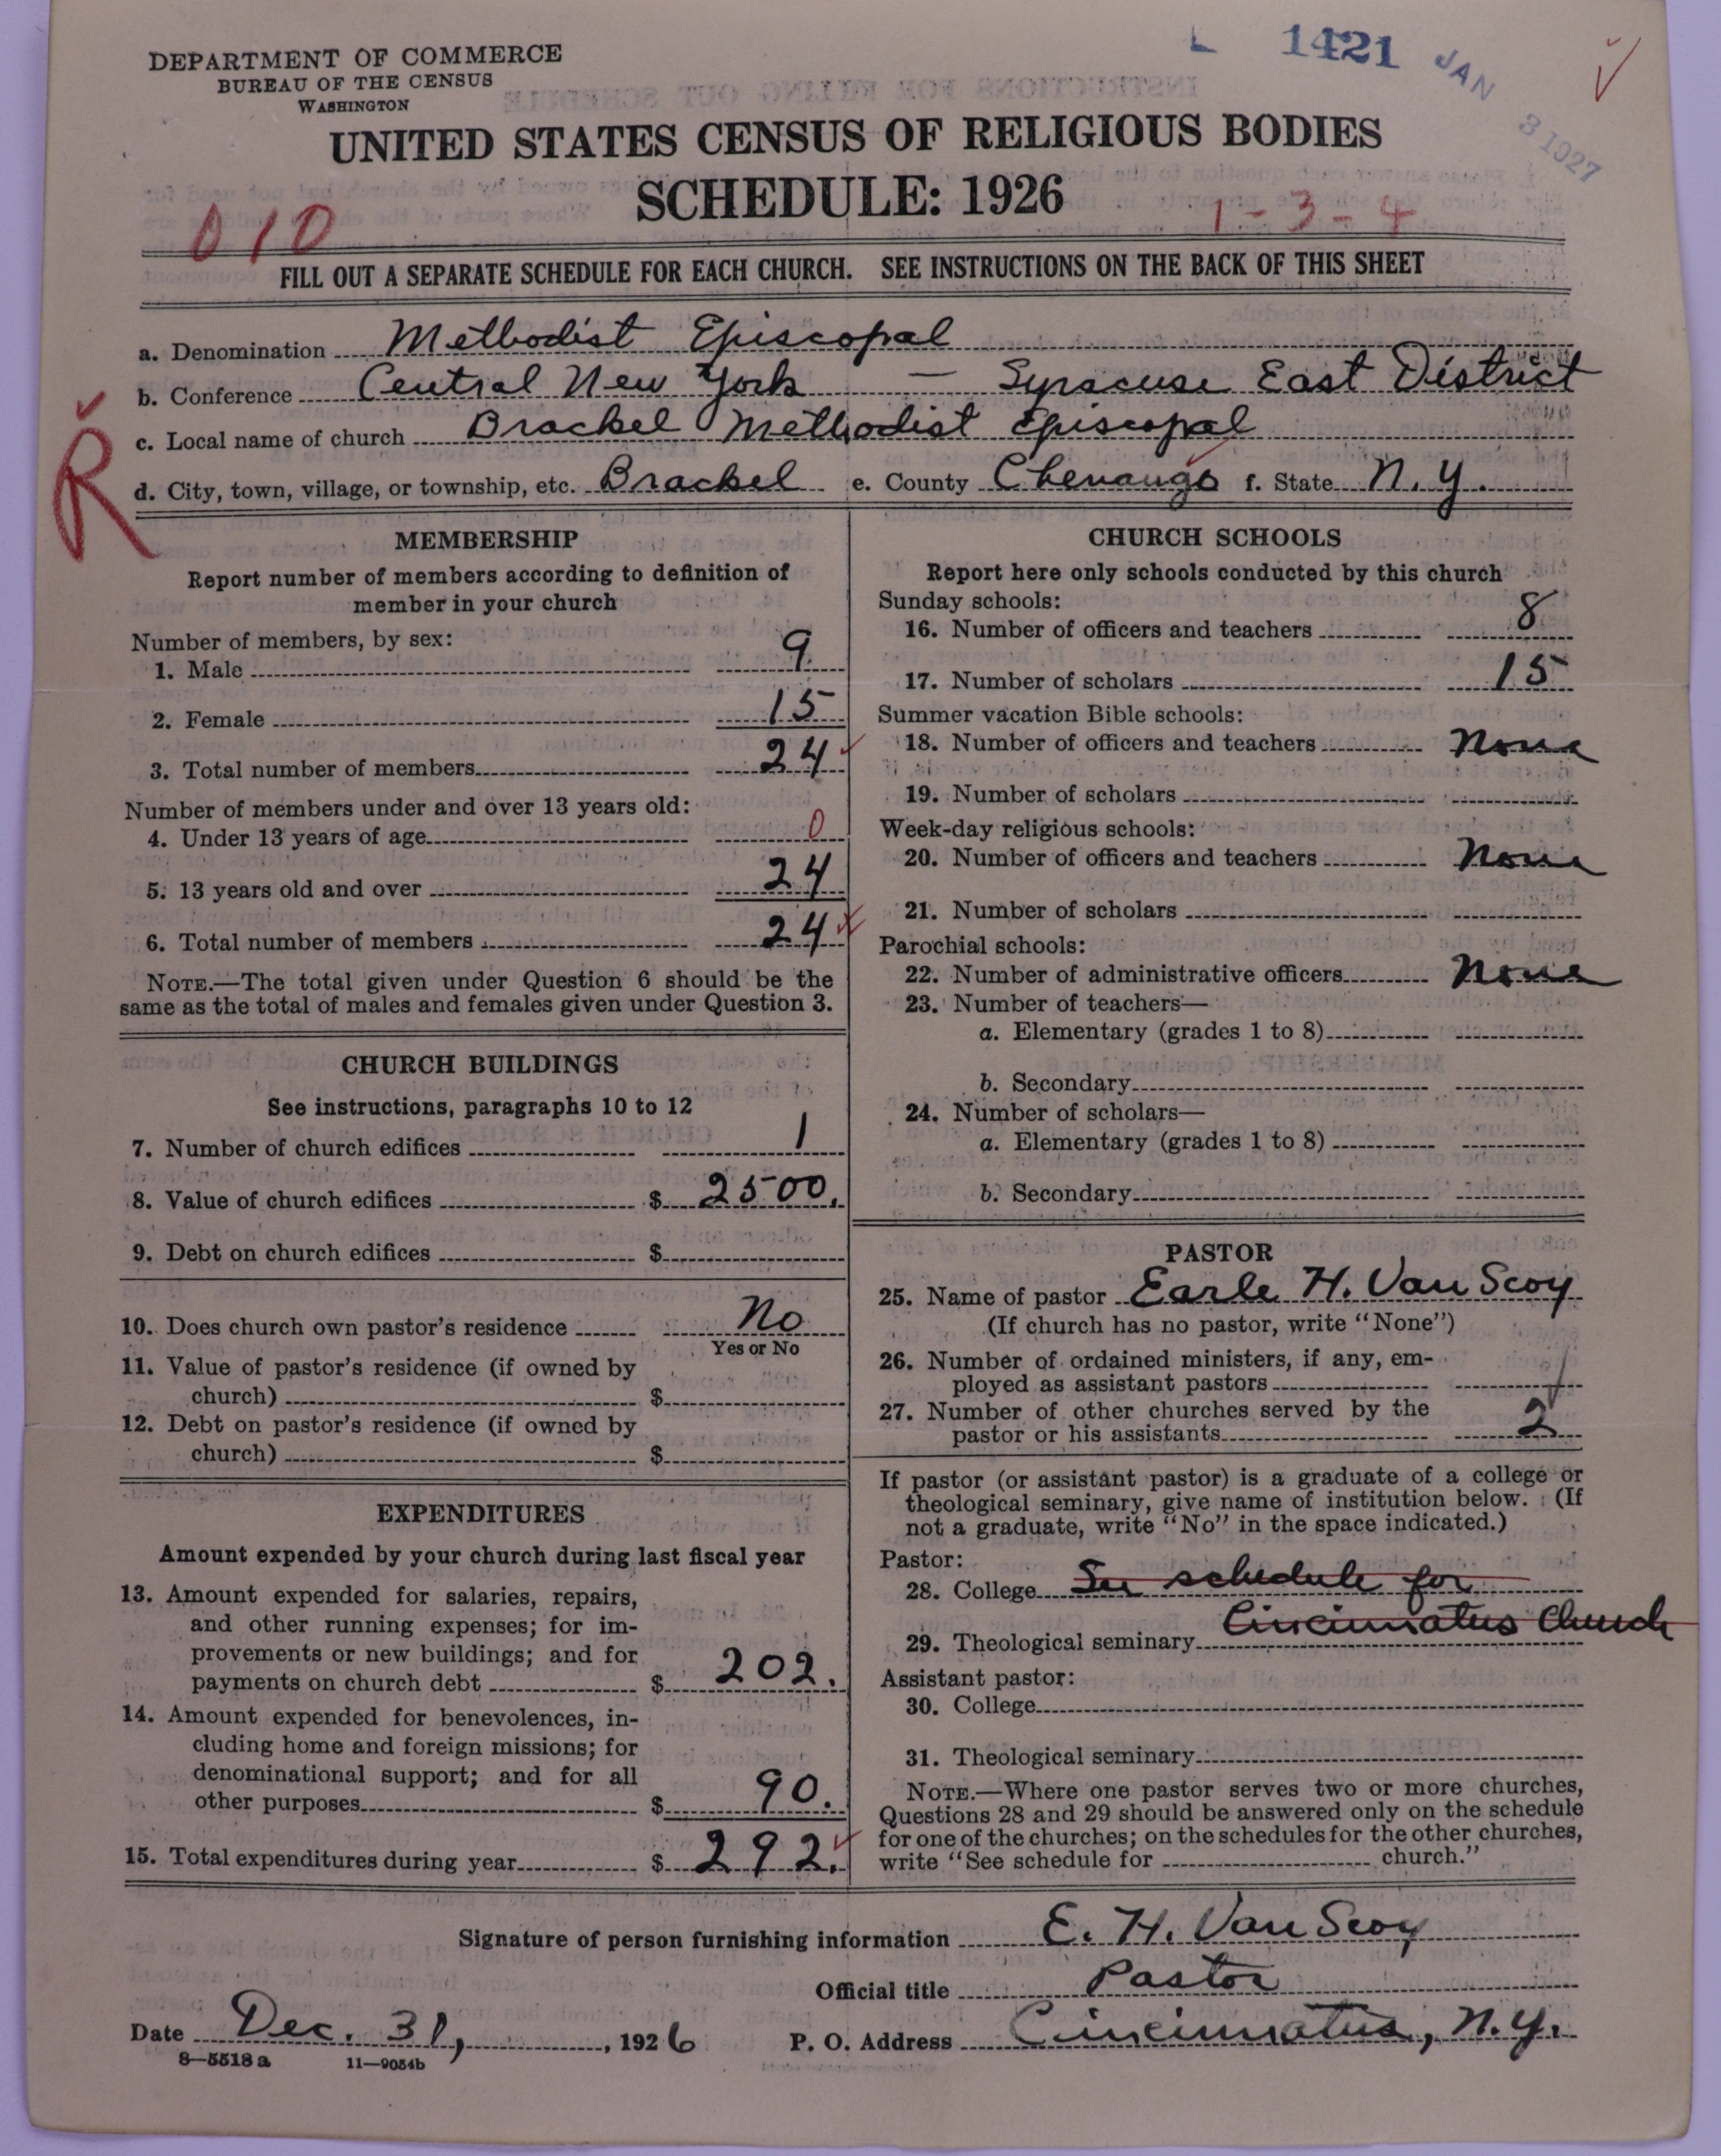 DEPARTMENT OF COMMERCE
BUREAU OF THE CENSUS
WASHINGTON
1421 JAN 3 1927
UNITED STATES CENSUS OF RELIGIOUS BODIES
SCHEDULE: 1926
010
1-3-4
FILL OUT A SEPARATE SCHEDULE FOR EACH CHURCH. SEE INSTRUCTIONS ON THE BACK OF THIS SHEET
a. Denomination Methodist Episcopal
b. Conference Central New York — Syracuse East District
c. Local name of church Brackel Methodist Episcopal
d. City, town, village, or township, etc. Brackel e. County Chenango f. State N. Y.
R
MEMBERSHIP
Report number of members according to definition of
member in your church
Number of members, by sex:
1. Male 9
2. Female 15
3. Total number of members 24
Number of members under and over 13 years old:
4. Under 13 years of age 0
5. 13 years old and over 24
6. Total number of members 24
NOTE.—The total given under Question 6 should be the
same as the total of males and females given under Question 3.
CHURCH BUILDINGS
See instructions, paragraphs 10 to 12
7. Number of church edifices 1
8. Value of church edifices $ 2500.
9. Debt on church edifices $
10. Does church own pastor's residence No
Yes or No
11. Value of pastor's residence (if owned by
church) $
12. Debt on pastor's residence (if owned by
church) $
EXPENDITURES
Amount expended by your church during last fiscal year
13. Amount expended for salaries, repairs,
and other running expenses; for im-
provements or new buildings; and for
payments on church debt $ 202.
14. Amount expended for benevolences, in-
cluding home and foreign missions; for
denominational support; and for all
other purposes $ 90.
15. Total expenditures during year $ 292.
CHURCH SCHOOLS
Report here only schools conducted by this church
Sunday schools:
16. Number of officers and teachers 8
17. Number of scholars 15
Summer vacation Bible schools:
18. Number of officers and teachers None
19. Number of scholars
Week-day religious schools:
20. Number of officers and teachers None
21. Number of scholars
Parochial schools:
22. Number of administrative officers None
23. Number of teachers—
a. Elementary (grades 1 to 8)
b. Secondary
24. Number of scholars—
a. Elementary (grades 1 to 8)
b. Secondary
PASTOR
25. Name of pastor Earle H. Van Scoy
(If church has no pastor, write "None")
26. Number of ordained ministers, if any, em-
ployed as assistant pastors
27. Number of other churches served by the
pastor or his assistants 2
If pastor (or assistant pastor) is a graduate of a college or
theological seminary, give name of institution below. (If
not a graduate, write "No" in the space indicated.)
Pastor:
28. College See schedule for
29. Theological seminary Cincinnatus Church
Assistant pastor:
30. College
31. Theological seminary
NOTE.—Where one pastor serves two or more churches,
Questions 28 and 29 should be answered only on the schedule
for one of the churches; on the schedules for the other churches,
write "See schedule for church."
Signature of person furnishing information E. H. Van Scoy
Official title Pastor
Date Dec. 31, 1926 P. O. Address Cincinnatus, N.Y.
8—5518 a 11—9054b